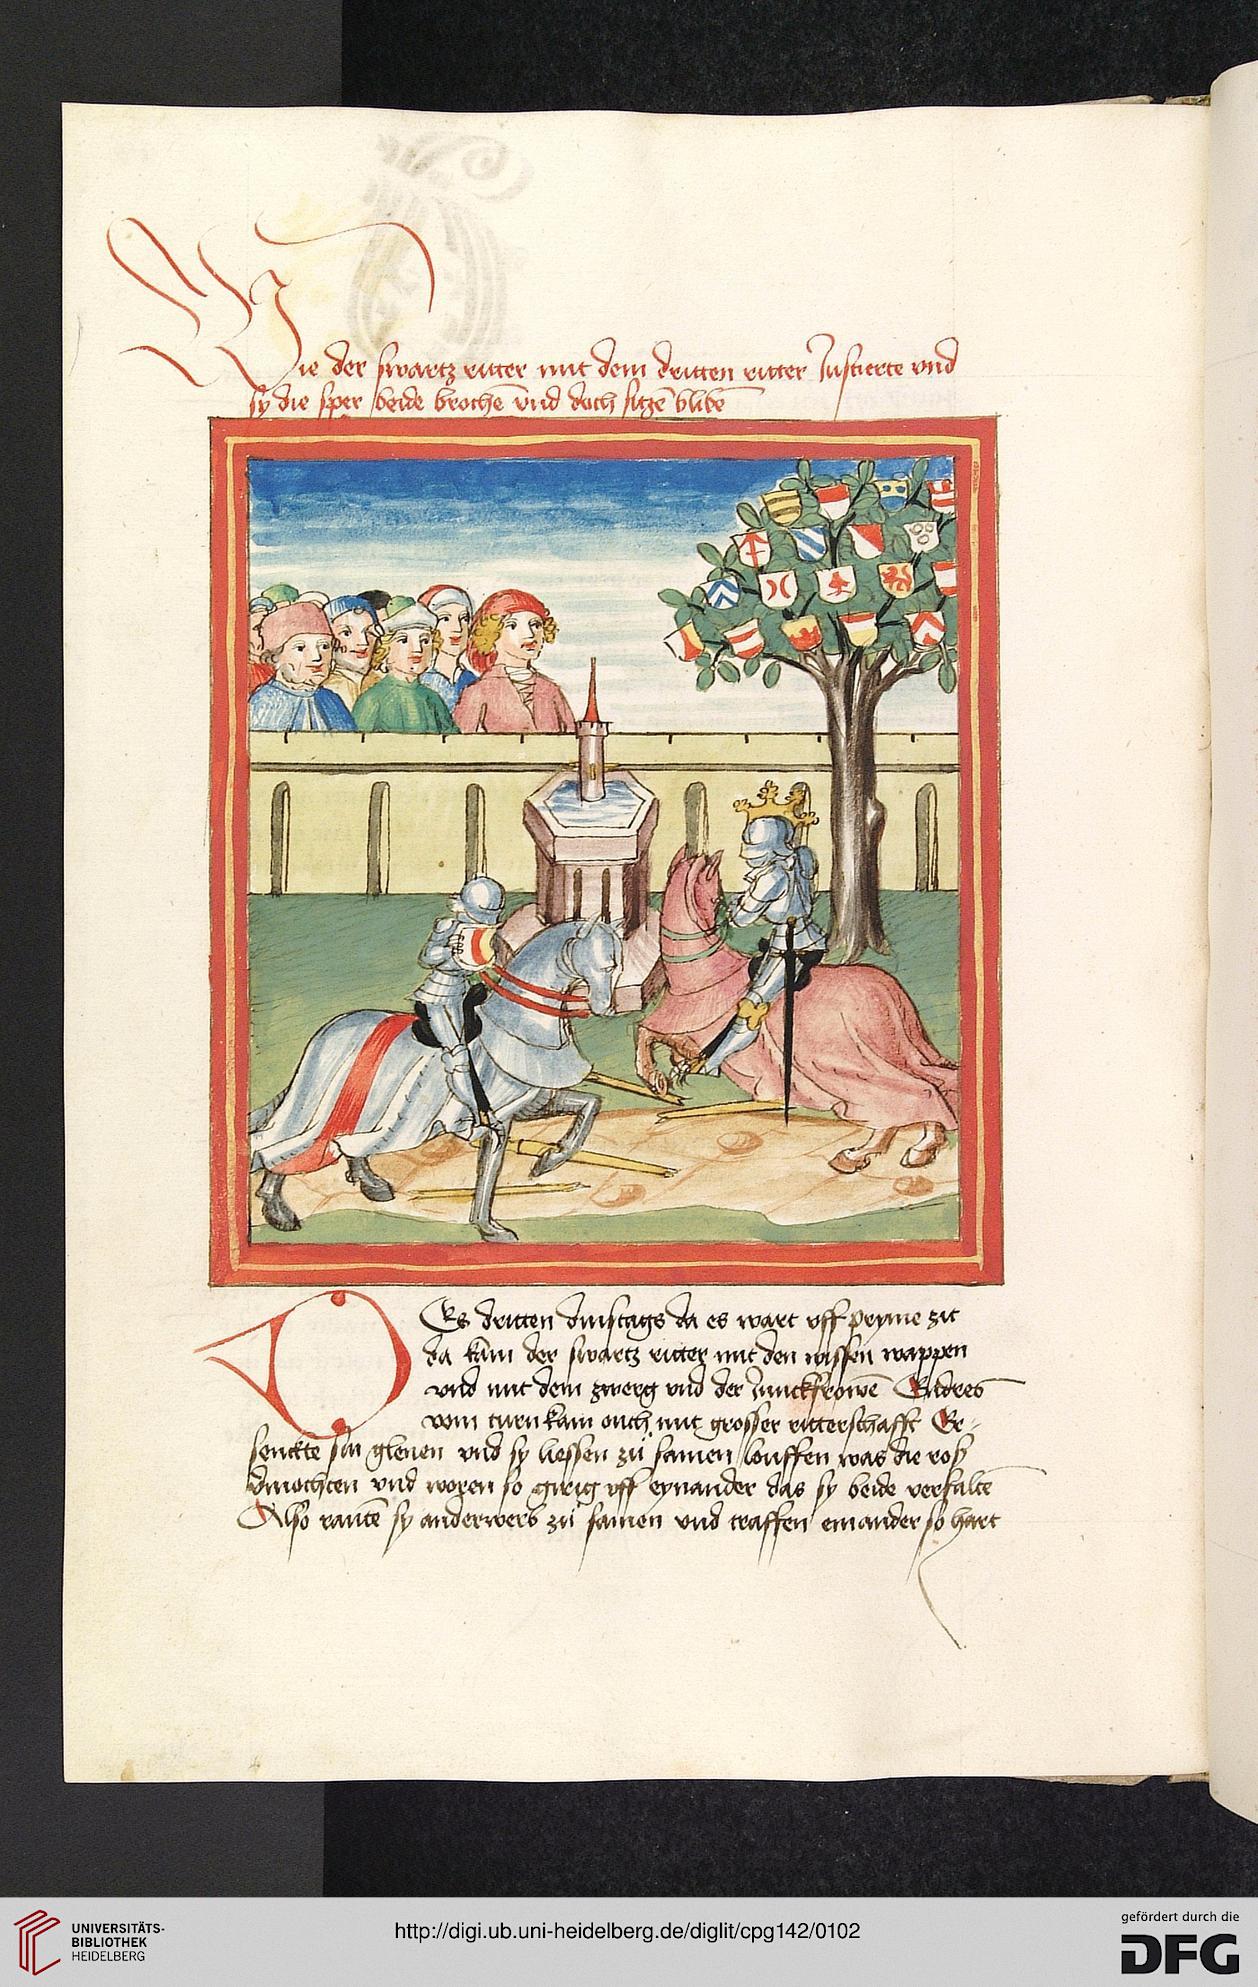 Wie der swartz ritter mit dem dritten ritter Justierte vnd
sy die sper beide brochē vnd doch sitzē blibē
Des dritten dinstags da es wart vff pryme zit
da kam der swartz ritter mit den wissen wappen
vnd mit dem zwerg vnd der Junckfrowē Endres
vom turn kam ouch mit grosser ritterschafft Er-
senckte sin glenen vnd sy liessen zů samen louffen was die roß
vmochten vnd woren so girig vff eynander das sy beide verfaltē
Also rantē sy anderwerb zů samen vnd traffen einander so hart
UNIVERSITÄTS-
BIBLIOTHEK
HEIDELBERG
http://digi.ub.uni-heidelberg.de/diglit/cpg142/0102
gefördert durch die
DFG